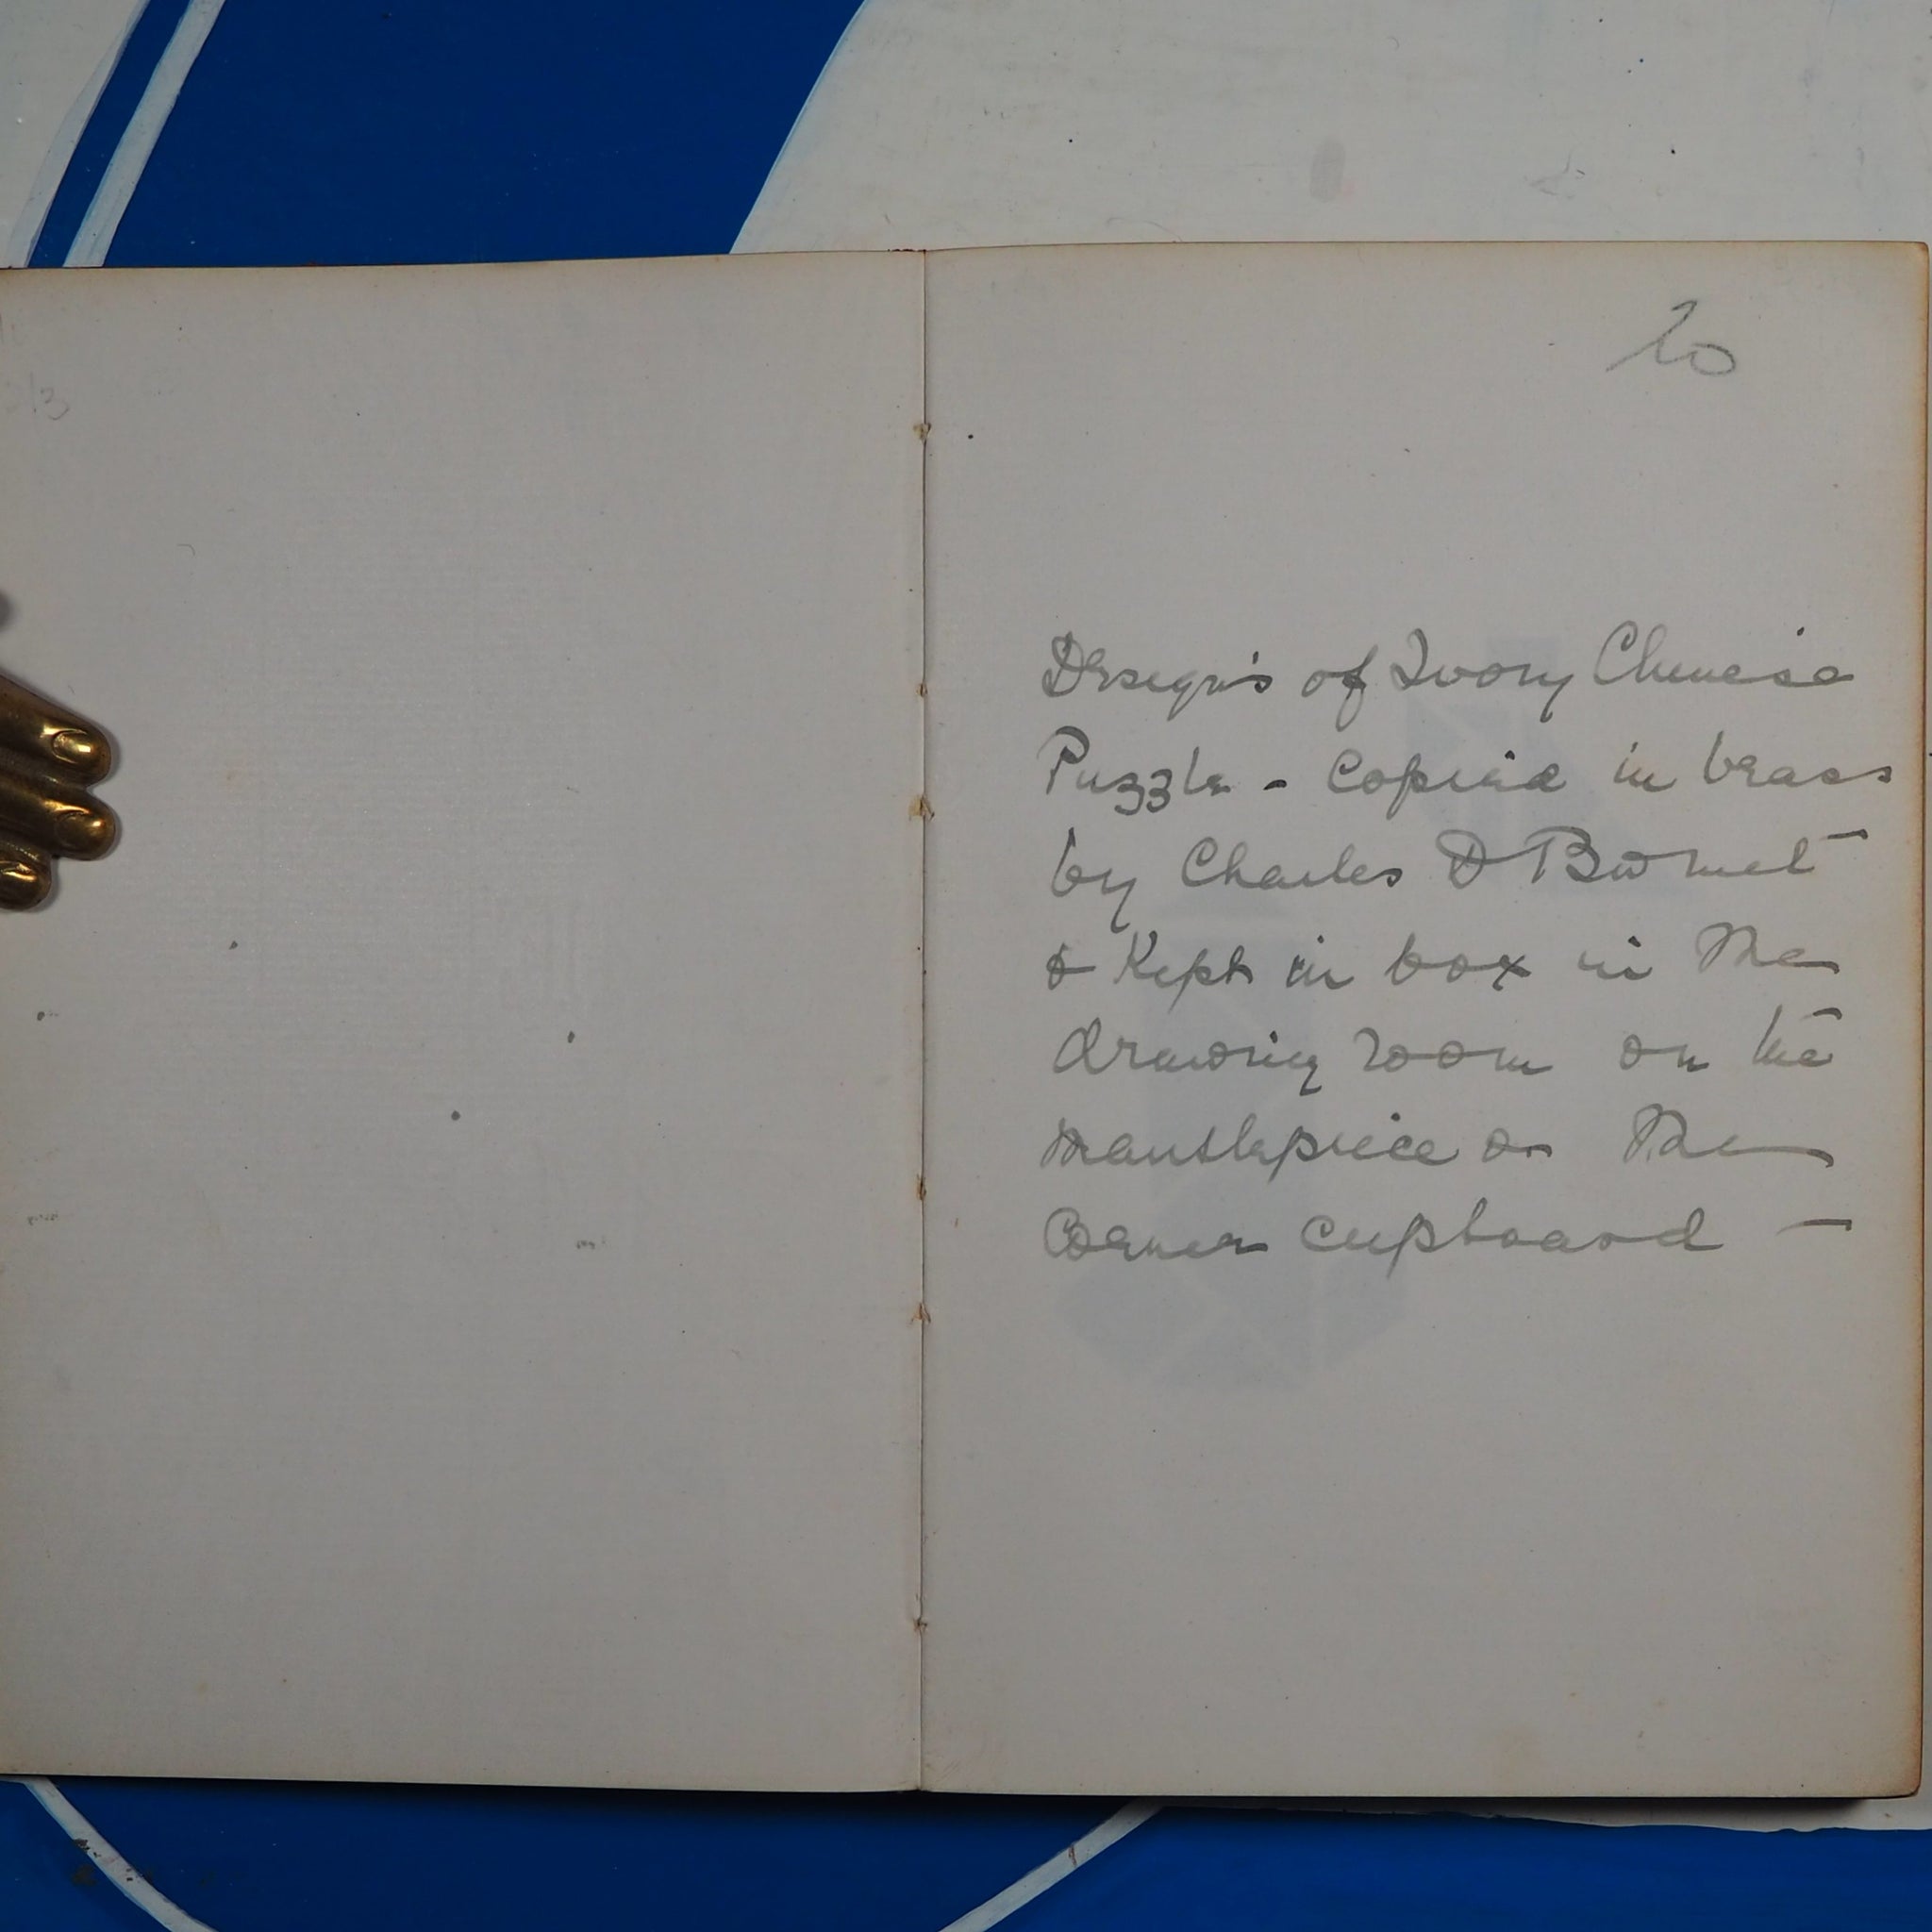 20
Designs of Ivory Chinese
Puzzle - Copied in brass
by Charles D
& Kept in box in the
drawing room on the
mantlepiece or the
Corner cupboard -